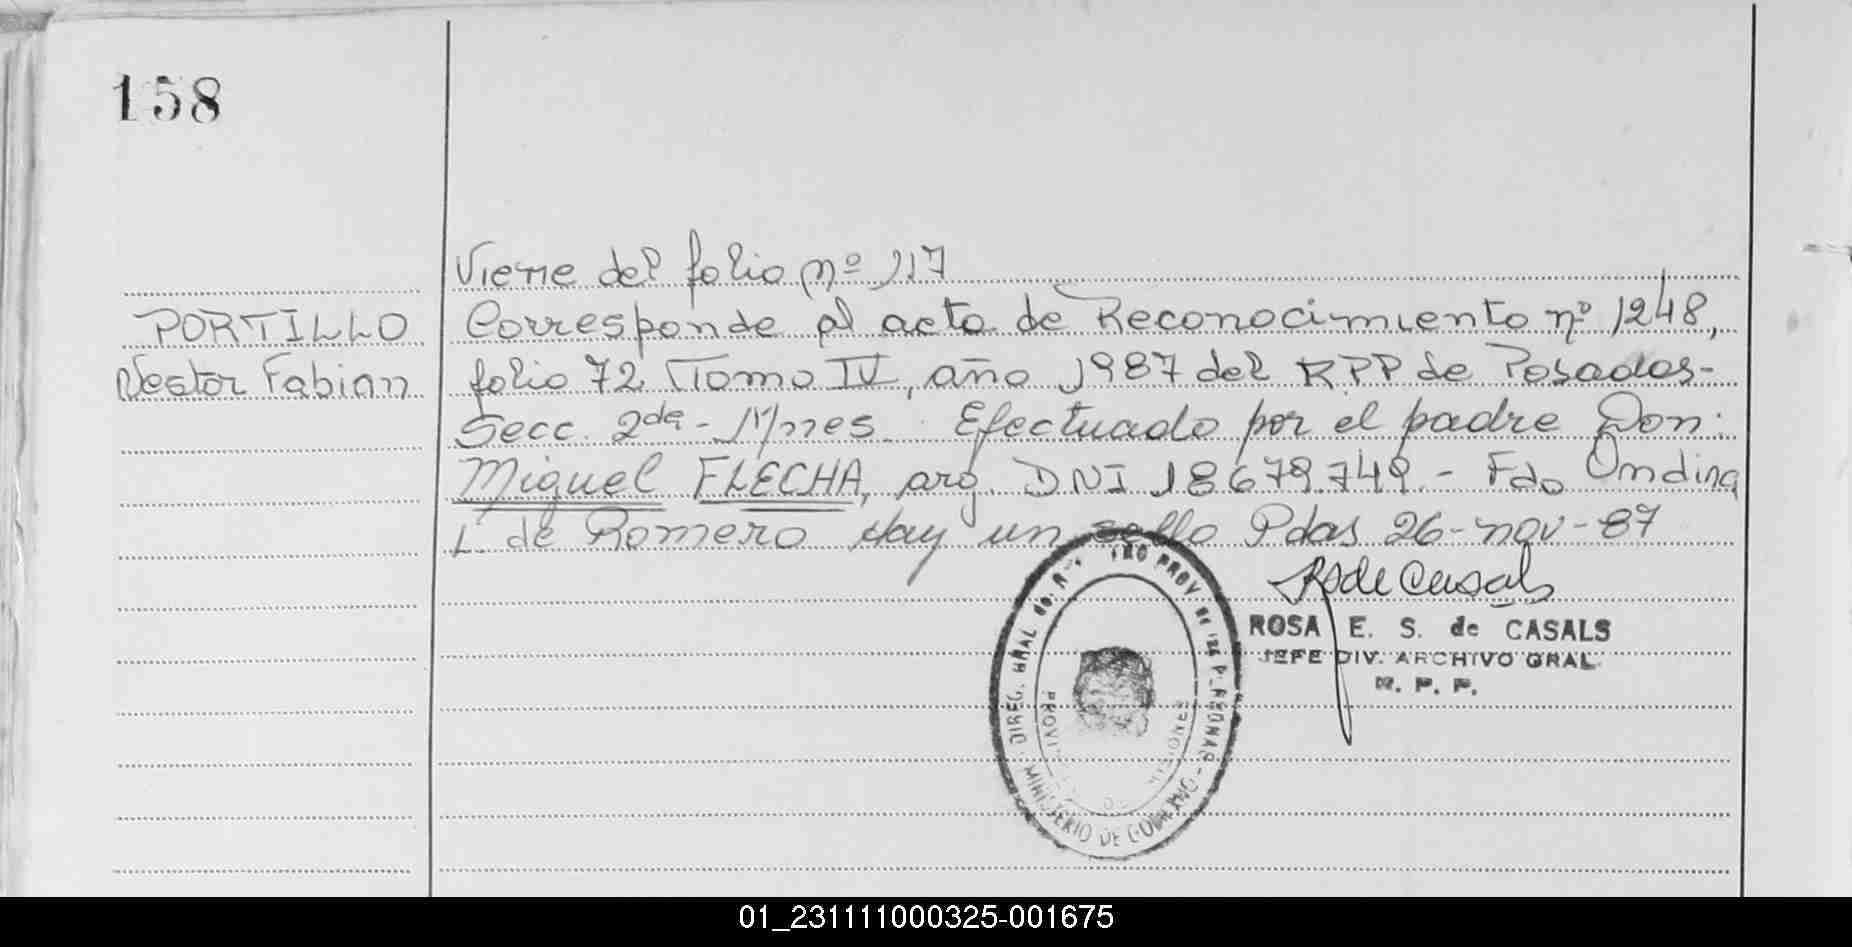 158
Viene del folio nº 117
PORTILLO
Nestor Fabian
Corresponde al acta de Reconocimiento nº 1248,
folio 72 Tomo IV, año 1987 del RPP de Posadas-
Secc. 2da - Mnes. Efectuado por el padre Don:
Miguel FLECHA, arg. DNI 18678.749.- Fdo Ondina
L. de Romero Hay un sello Pdas 26-nov-87
ROSA E. S. de CASALS
JEFE DIV. ARCHIVO GRAL.
R. P. P.
DIREG. GRAL
MINISTERIO DE GOBIERNO
01_231111000325-001675